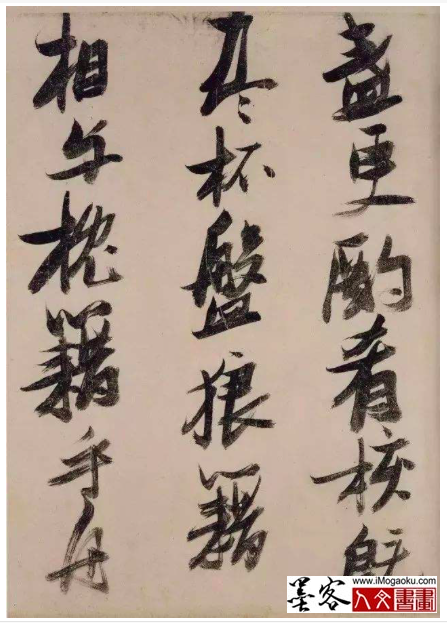 盞更酌肴核既
尽杯盤狼籍
相与枕籍乎舟
墨客
www.iMogaoku.com
人文書畫